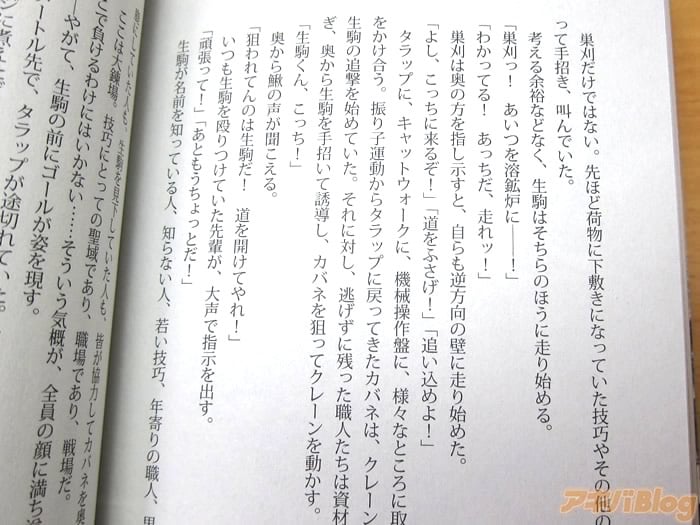 巣刈だけではない。先ほど荷物に下敷きになっていた技巧やその他の
って手招き、叫んでいた。
考える余裕などなく、生駒はそちらのほうに走り始める。
「巣刈っ! あいつを溶鉱炉に――!」
「わかってる! あっちだ、走れッ!」
巣刈は奥の方を指し示すと、自らも逆方向の壁に走り始めた。
「よし、こっちに来るぞ!」「道をふさげ!」「追い込めよ!」
タラップに、キャットウォークに、機械操作盤に、様々なところに取
をかけ合う。振り子運動からタラップに戻ってきたカバネは、クレーン
生駒の追撃を始めていた。それに対し、逃げずに残った職人たちは資材
ぎ、奥から生駒を手招いて誘導し、カバネを狙ってクレーンを動かす。
「生駒くん、こっち!」
奥から鰍の声が聞こえる。
「狙われてんのは生駒だ! 道を開けてやれ!」
いつも生駒を殴りつけていた先輩が、大声で指示を出す。
「頑張って!」「あともうちょっとだ!」
生駒が名前を知っている人、知らない人、若い技巧、年寄りの職人、男
にしていた人も、生駒を見下していた人も、皆が協力してカバネを奥
ここは大鐘場。技巧にとっての聖域であり、職場であり、戦場だ。
こで負けるわけにはいかない……そういう気概が、全員の顔に満ち
――やがて、生駒の前にゴールが姿を現す。
ートル先で、タラップが途切れていた。
アキバBlog